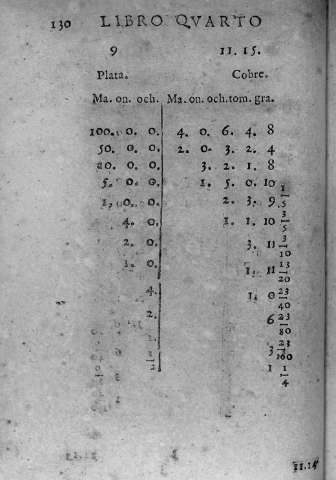 130 LIBRO QVARTO
9 11. 15.
Plata. Cobre.
Ma. on. och. Ma. on. och. tom. gra.
100. 0. 0. 4. 0. 6. 4. 8
50. 0. 0. 2. 0. 3. 2. 4
20. 0. 0. 3. 2. 1. 8
5. 0. 0. 1. 5. 0. 10
1. 0. 0. 2. 3. 9 1/5
4. 0. 1. 1. 10 3/5
2. 0. 3. 11 3/10
1. 0. 1. 11 13/20
4. 1. 0 23/40
2. 6 23/80
1 3 23/160
1/2 1 1/4
11.14